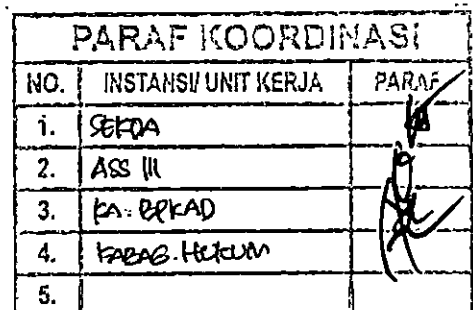 PARAF KOORDINASI
NO. INSTANSI/ UNIT KERJA PARAF
1. SEKDA
2. ASS III
3. KA. BPKAD
4. KABAG. HUKUM
5.